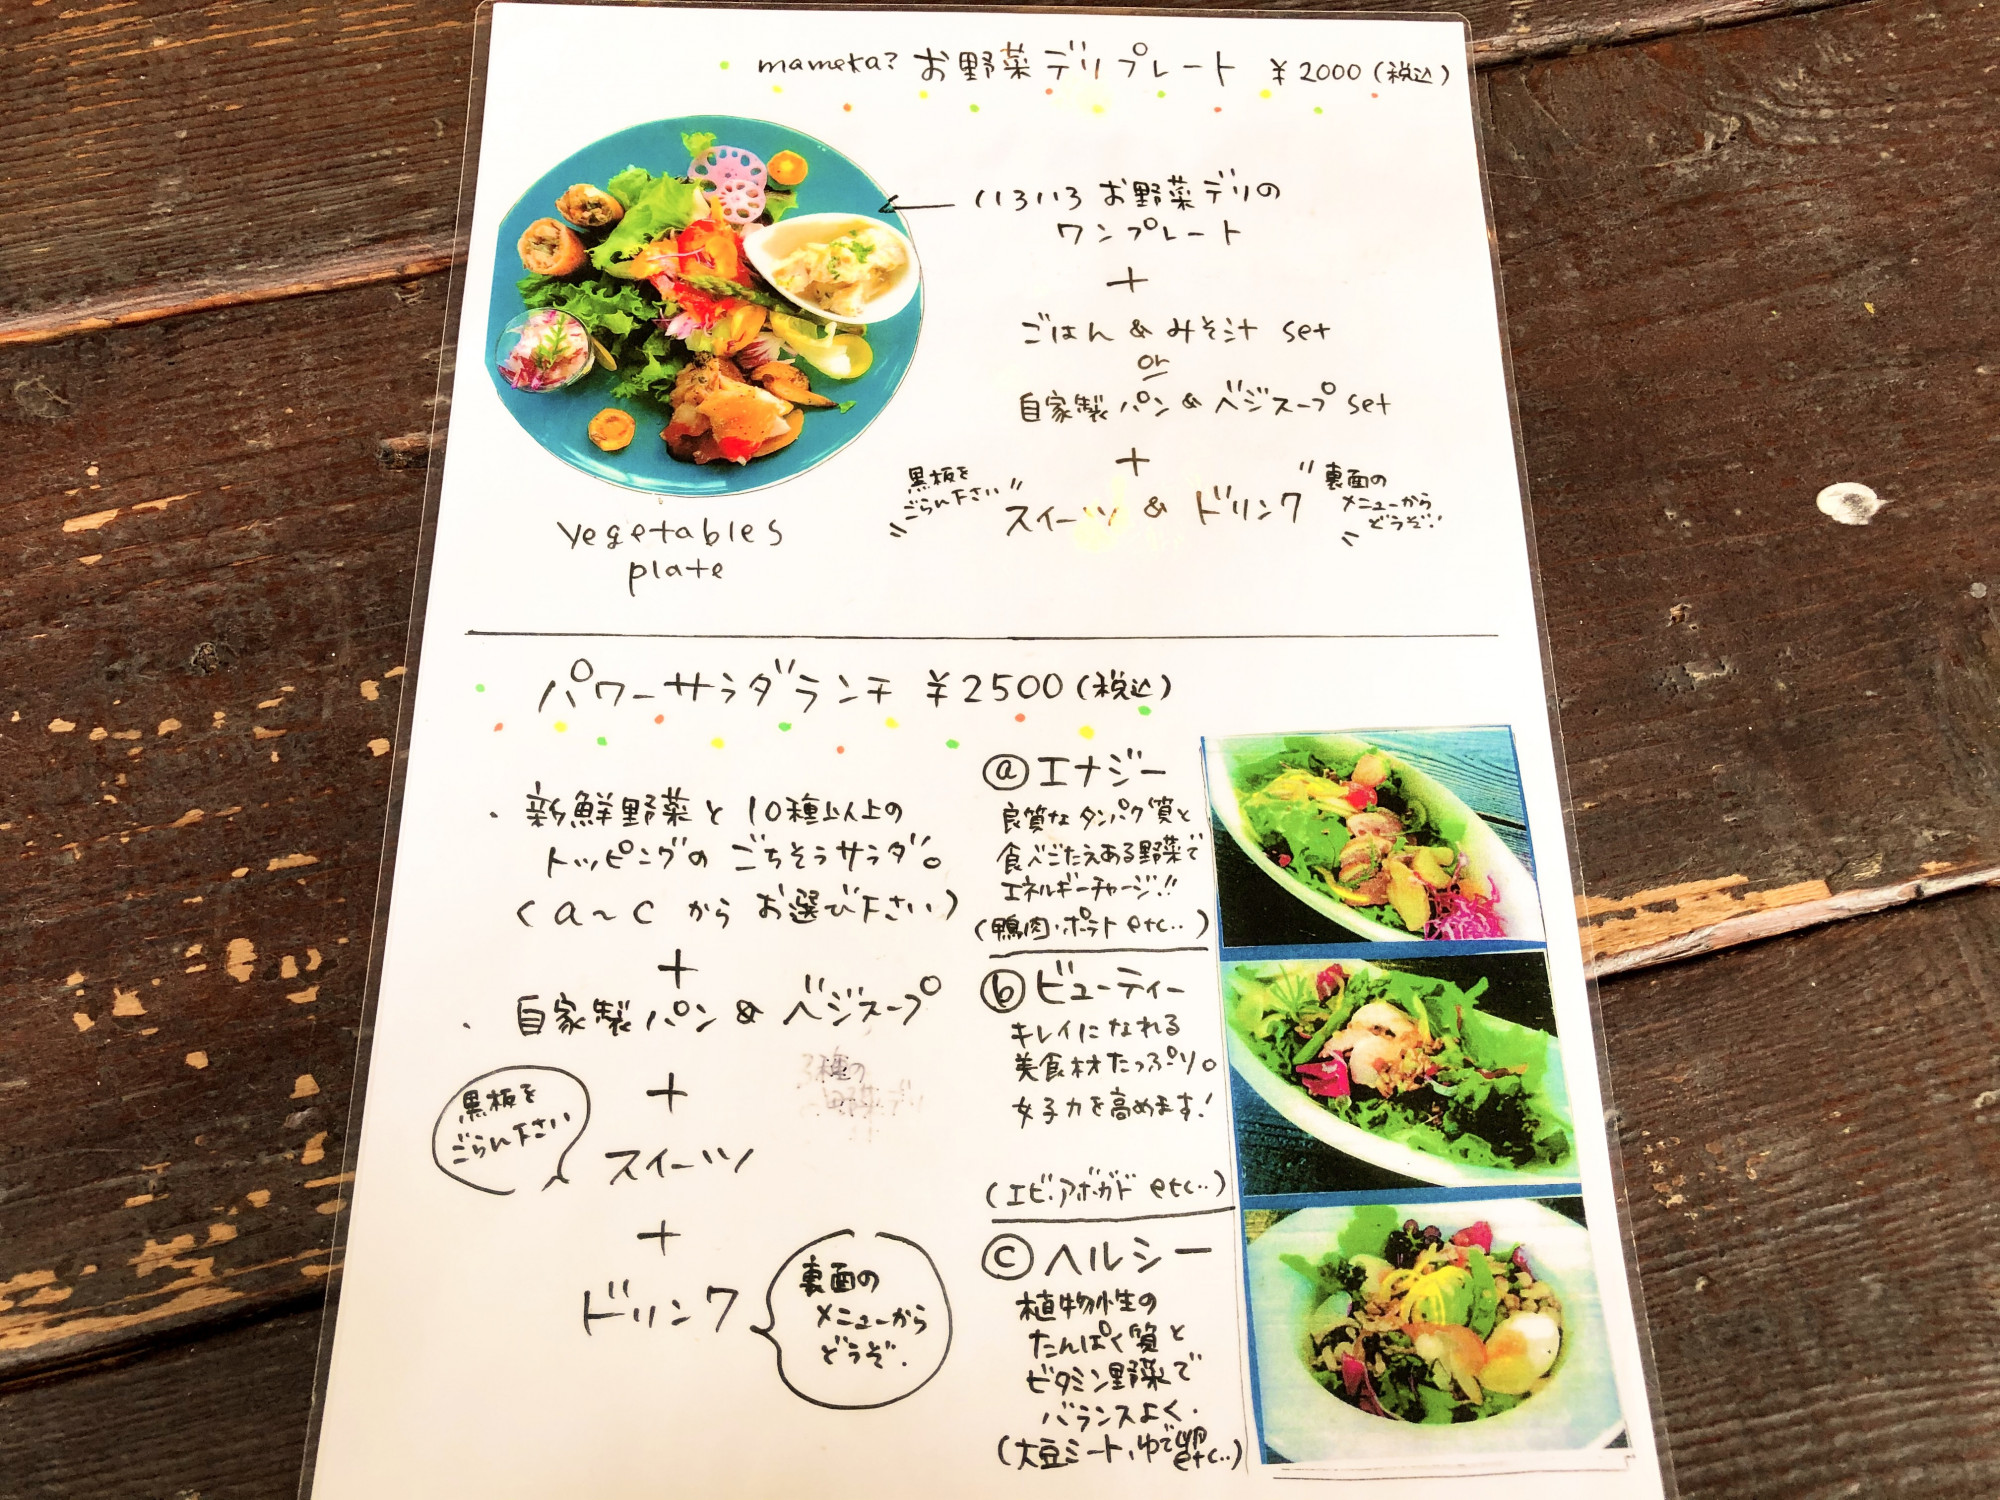 mameka? お野菜デリプレート ¥2000(税込)
いろいろお野菜デリの
ワンプレート
+
ごはん & みそ汁 set
or
自家製パン & ベジスープ set
+
黒板を
ごらん下さい
スイーツ & ドリンク
裏面の
メニューから
どうぞ!
vegetables
plate
パワーサラダランチ ¥2500(税込)
・新鮮野菜と10種以上の
トッピングのごちそうサラダ。
(a~cからお選び下さい)
+
・自家製パン & ベジスープ
3種の
野菜デリ
+
黒板を
ごらん下さい
スイーツ
+
ドリンク
裏面の
メニューから
どうぞ.
ⓐエナジー
良質なタンパク質と
食べごたえある野菜で
エネルギーチャージ!!
(鴨肉・ポテト etc‥)
ⓑビューティー
キレイになれる
美食材たっぷり。
女子力を高めます!
(エビ・アボカド etc‥)
ⓒヘルシー
植物性の
たんぱく質と
ビタミン野菜で
バランスよく.
(大豆ミート、ゆで卵 etc‥)